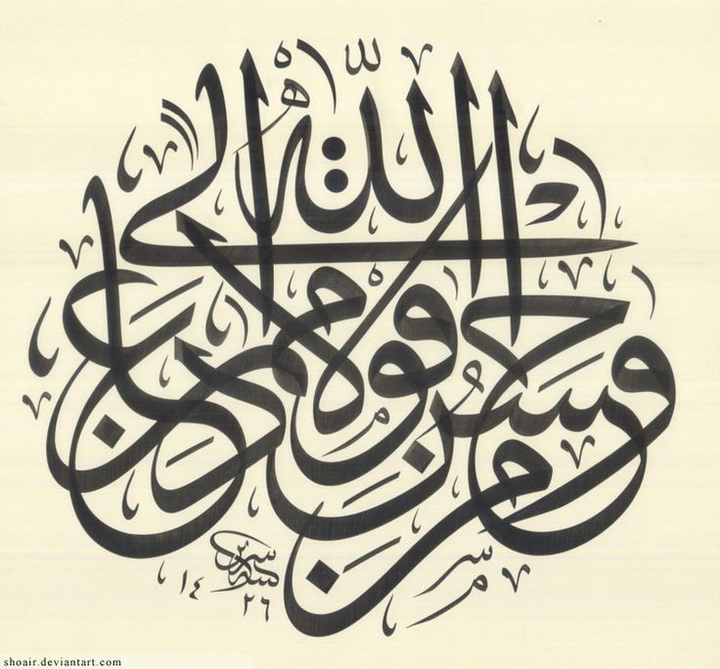 ومن أحسن قولا ممن دعا إلى الله
١٤٢٦
shoair.deviantart.com